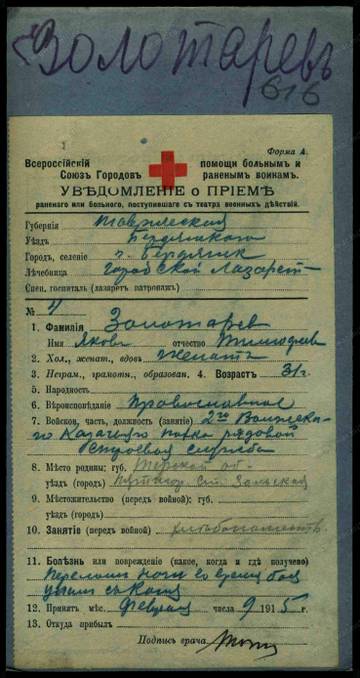 Золотаревъ
616
Форма А.
Всероссійскій
Союзъ Городовъ
помощи больнымъ и
раненымъ воинамъ.
УВѢДОМЛЕНІЕ о ПРІЕМѢ
раненаго или больного, поступившаго съ театра военныхъ дѣйствій.
Губернія Таврическая
Уѣздъ Бердянскаго
Городъ, селеніе г. Бердянск
Лѣчебница Городской Лазарет
Спец. госпиталь (лазаретъ патронажъ)
№ 4
1. Фамилія Золотарев
Имя Яков отчество Тимофеев
2. Хол., женат., вдовъ женатъ
3. Неграм., грамотн., образован. 4. Возрастъ 31 г.
5. Народность
6. Вѣроисповѣданіе Православное
7. Войсков. часть, должность (занятіе) 2го Волжска-
го Казачьего полка рядовой
строевая служба
8. Мѣсто родины: губ. Терской об.
уѣздъ (городъ) Пятигор. Ст. Зольская
9. Мѣстожительство (передъ войной): губ.
уѣздъ (городъ)
10. Занятіе (передъ войной) хлебопашеств.
11. Болѣзнь или поврежденіе (какое, когда и гдѣ получено)
Перелом ноги во время боя
упал с коня
12. Принятъ мѣс. Февраля числа 9 1915 г.
13. Откуда прибылъ
Подпись врача